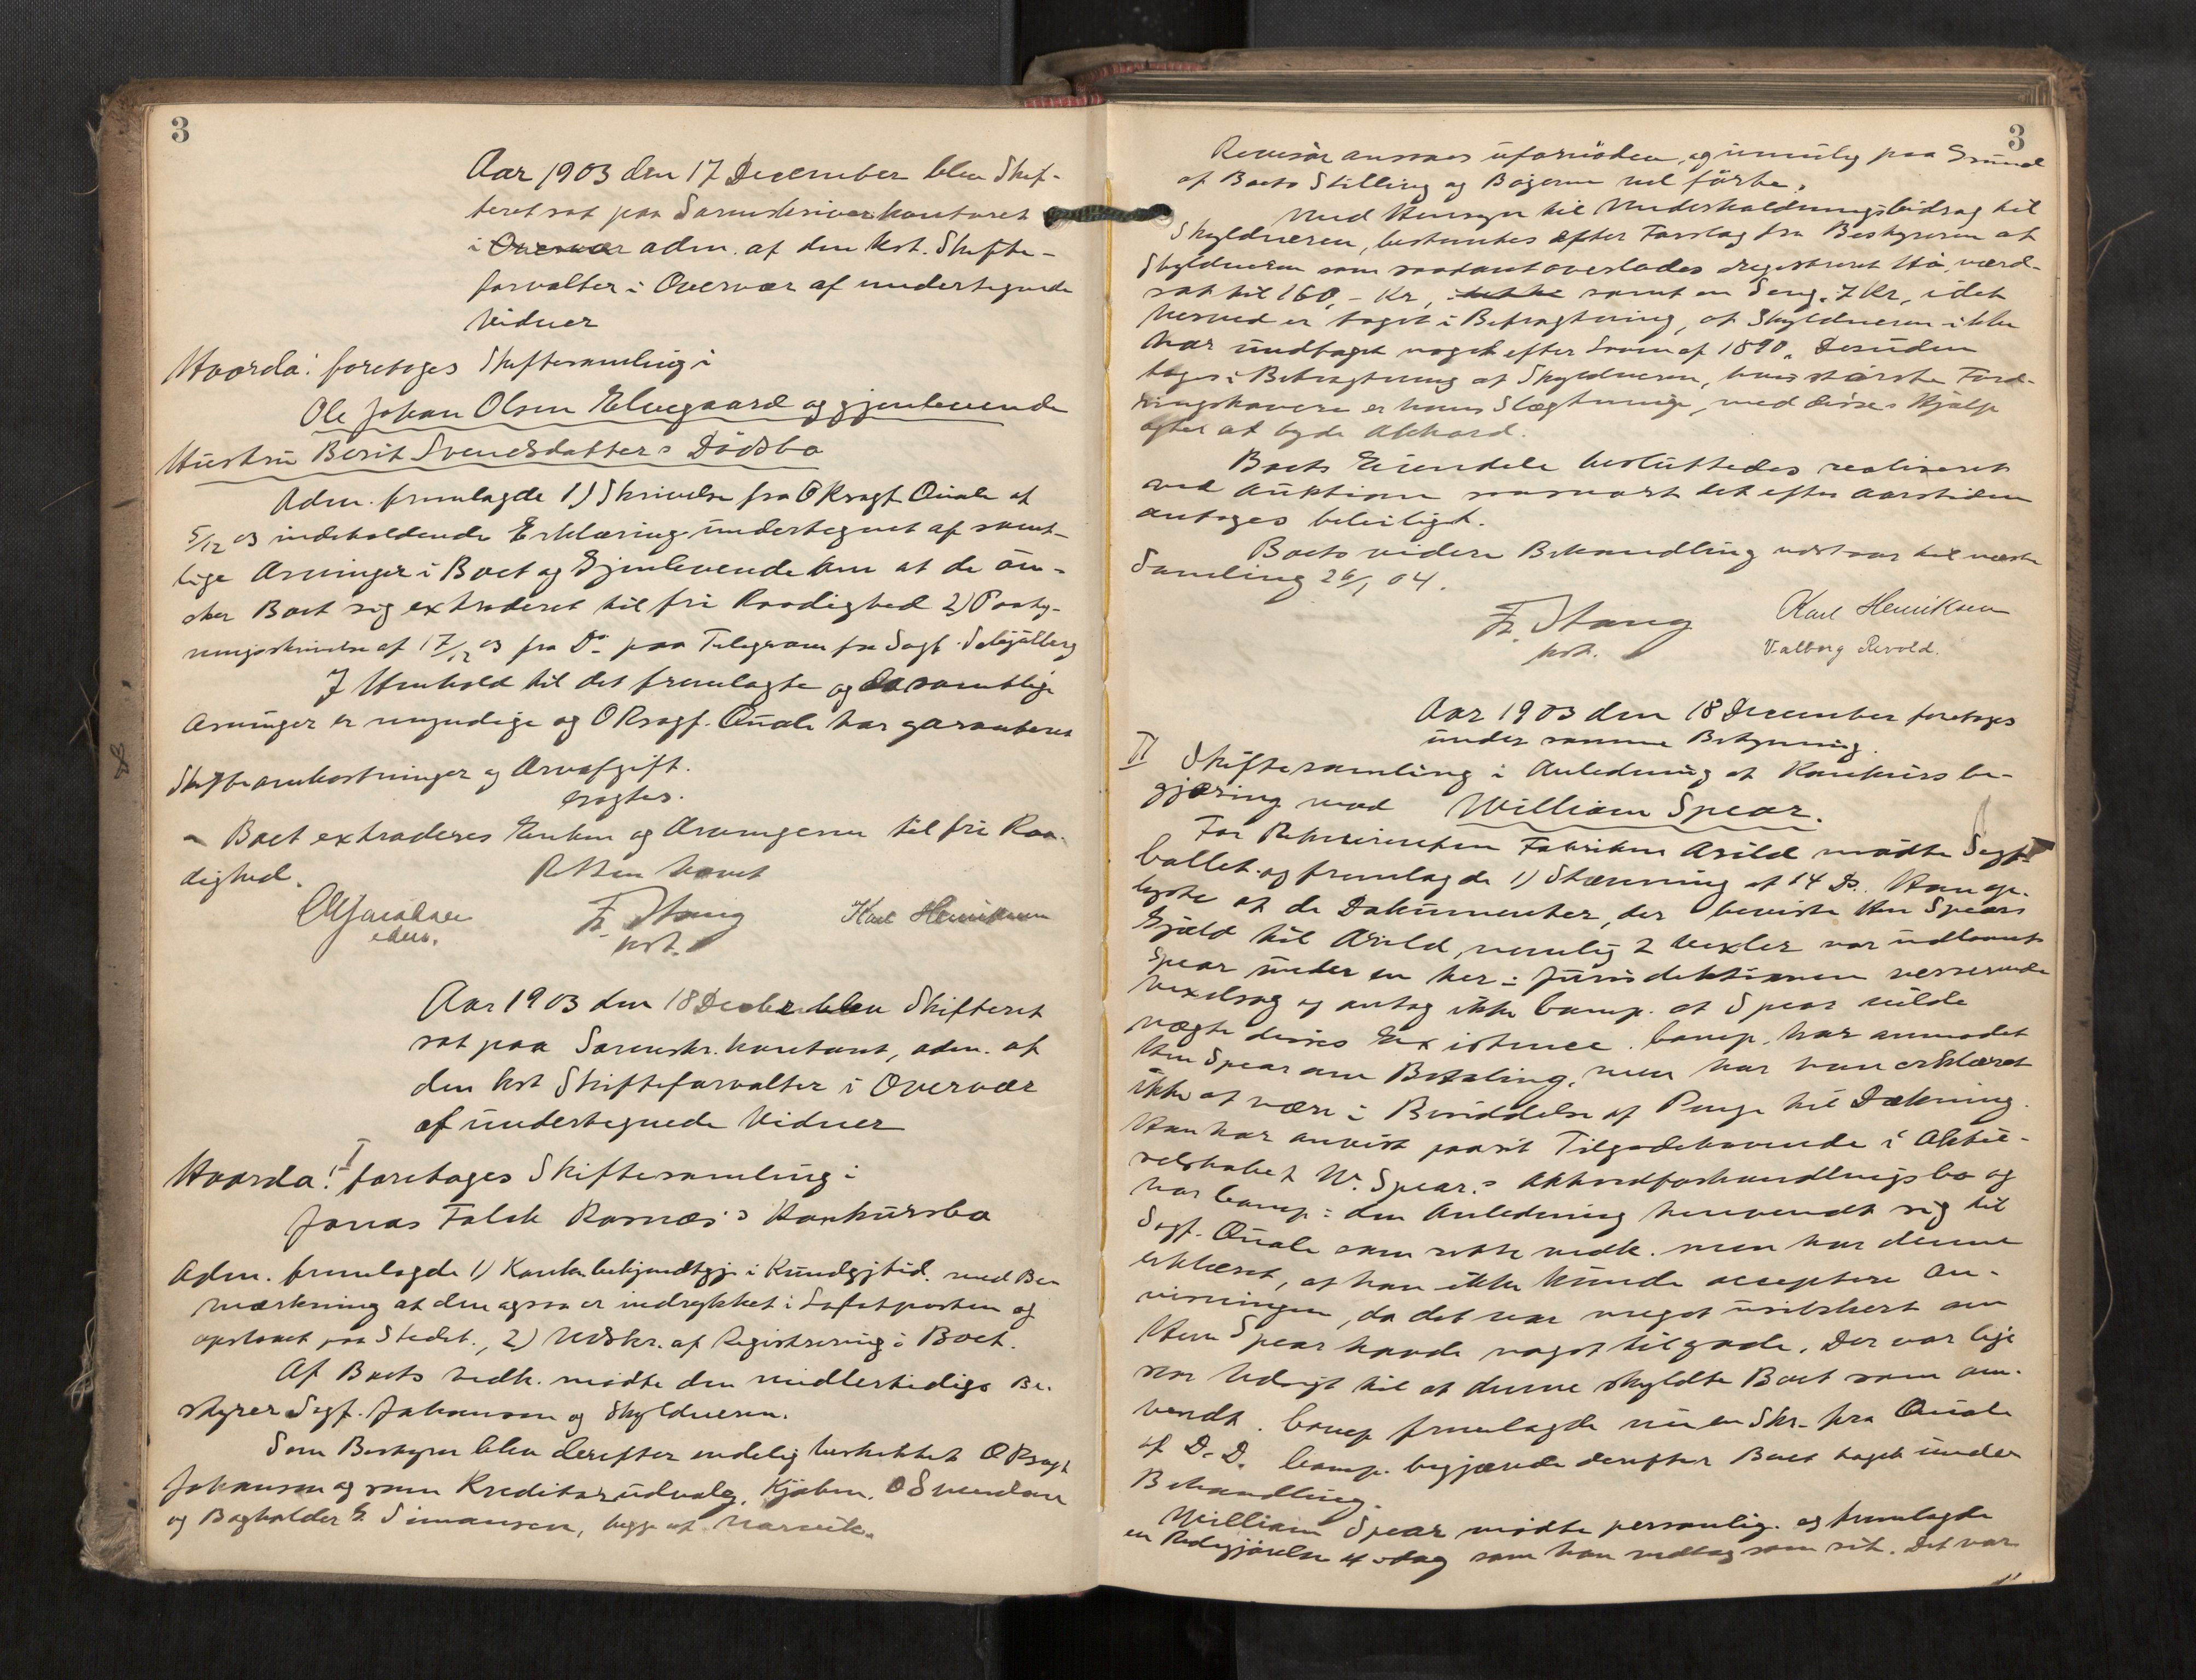 3
Aar 1903 den 17 December blev Skif-
teret sat paa Sorenskriverkontoret
i Overvær adm. af den kst. Skifte-
forvalter i Overvær af undertegnede
Vidner
Hvorda: foretoges Skiftesamling i
Ole Johan Olsen Elvegaard og gjenlevende
Hustru Berit Svendsdatters Dødsbo
Adm. fremlagde 1) Skrivelse fra ORsagf. Quale af
5/12 03 indeholdende Erklæring undertegnet af samt-
lige Arvinger i Boet og Gjenlevende om at de øn-
sker Boet sig extraderet til fri Raadighed 2) Paateg-
ningsskrivelse af 17/12 03 fra Do paa Telegram fra Sagf.
I Henhold til det fremlagte og da samtlige
Arvinger er myndige og ORsagf. Quale har garanteret
Skifteomkostninger og Arvafgift.
eragtes.
Boet extraderes Enken og Arvingerne til fri Raa-
dighed.
Retten hævet
F. Stang
kst.
Karl Henriksen
Aar 1903 den 18 Decbr blev Skifteret
sat paa Sorenskr. kontoret, adm. af
den kst Skifteforvalter i Overvær
af undertegnede Vidner
Hvorda: I foretoges Skiftesamling i
Jonas Falck Rasnæs's Konkursbo
Adm. fremlagde 1) Konk. bekjendtgj. i Kundgjtid. med Be-
mærkning at den ogsaa er indrykket i Lofotposten og
opslaaet paa Stedet., 2) Udskr. af Registrering i Boet.
Af Boets vedk. mødte den midlertidige Be-
styrer Sagf. Johanson og Skyldneren.
Som Bestyrer blev derefter endelig beskikket ORsagf.
Johanson og som Kreditorudvalg, Kjøbm. O Svendsen
og Bogholder E. Simonsen, begge af Narvik.
3
Revisor ansaaes ufornøden og umulig paa Grund
af Boets Stilling og Bøgerne vel førte.
Med Hensyn til Underholdningsbidrag til
Skyldneren, bestemtes efter Forslag fra Bestyreren at
Skyldneren som saadant overlodes registreret Hø, værd-
sat til 160,- Kr, samt en Seng. 7 Kr, idet
herved er taget i Betragtning, at Skyldneren ikke
har undtaget noget efter Loven af 1890. Desuden
toges i Betragtning at Skyldneren, hvis største Ford-
ringshavere er hans Slægtninge, med disses Hjælp
agter at byde Akkord.
Boets Eiendele besluttedes realiseret
ved Auktion saasnart det efter Aarstiden
antages beleiligt.
Boets videre Behandling udstaar til næste
Samling 26/1 04.
F. Stang
kst.
Karl Henriksen
Valborg Revold.
Aar 1903 den 18 December foretoges
under samme Bestyrning.
II Skiftesamling i Anledning af Konkursbe-
gjæring mod William Spear.
For Rekvirenten Fabrikør Arild mødte Sagf.
Collet og fremlagde 1) Stævning af 14 Ds. Han op-
lyste at de Dokumenter, der beviste Hr Spears
Gjæld til Arild, nemlig 2 Vexler var udlaant
Spear under en her i Jurisdiktionen verserende
Vexelsag og antog ikke Comp. at Spear vilde
nægte disses Existence. Comp. har anmodet
Hr Spear om Betaling, men har han erklæret
ikke at være i Besiddelse af Penge til Dækning.
Han har anvist paa sit Tilgodehavende i Aktie-
selskabet W. Spear.s Akkordforhandlingsbo og
har Comp i den Anledning henvendt sig til
Sagf. Quale som rette vedk. men har denne
erklæret, at han ikke kunde acceptere An-
visningen, da det var meget usikkert om
Herr Spear havde noget tilgode. Der var lige
stor Udsigt til at denne skyldte Boet som om-
vendt. Comp fremlagde nu en Skr. fra Quale
af D.D. Comp. begjærede derefter Boet taget under
Behandling.
William Spear mødte personlig. og fremlagde
en Redegjørelse af idag som han vedtog som sit. Det var